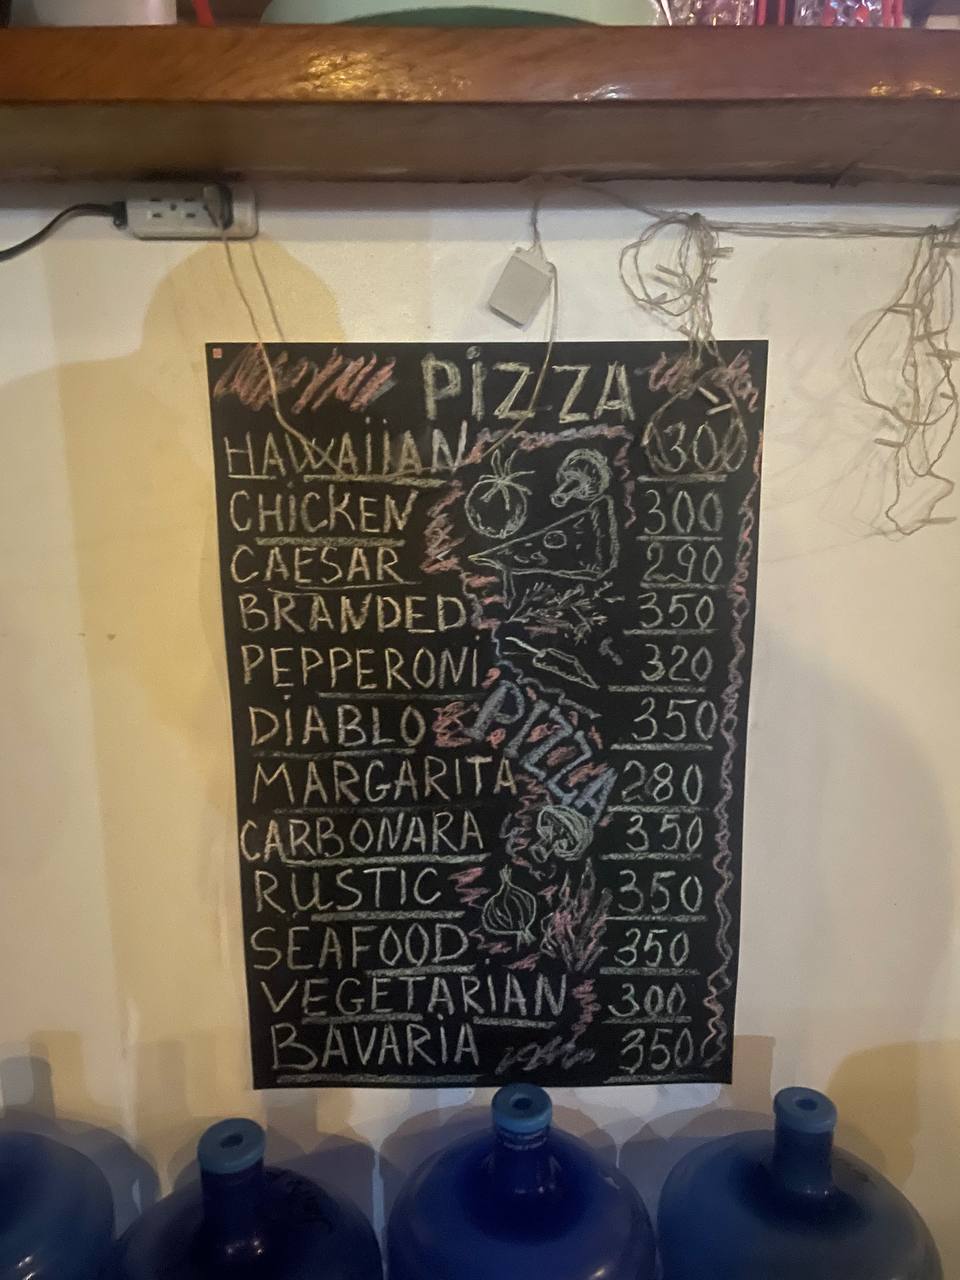 PiZZA
HAWAiiAN
CHiCKEN 300
CAESAR 290
BRANDED 350
PEPPERONi 320
DiABLO 350
PIZZA
MARGARITA 280
CARBONARA 350
RUSTIC 350
SEAFOOD 350
VEGETARiAN 300
BAVARiA 350